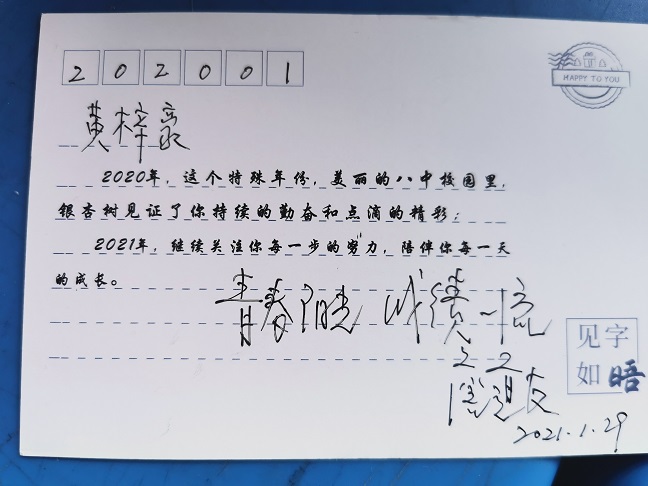 202001
HAPPY TO YOU
黄梓豪
2020年，这个特殊年份，美丽的八中校园里，
银杏树见证了你持续的勤奋和点滴的精彩；
2021年，继续关注你每一步的努力，陪伴你每一天
的成长。
青春阳光 成绩一流
见字
如晤
2021.1.29